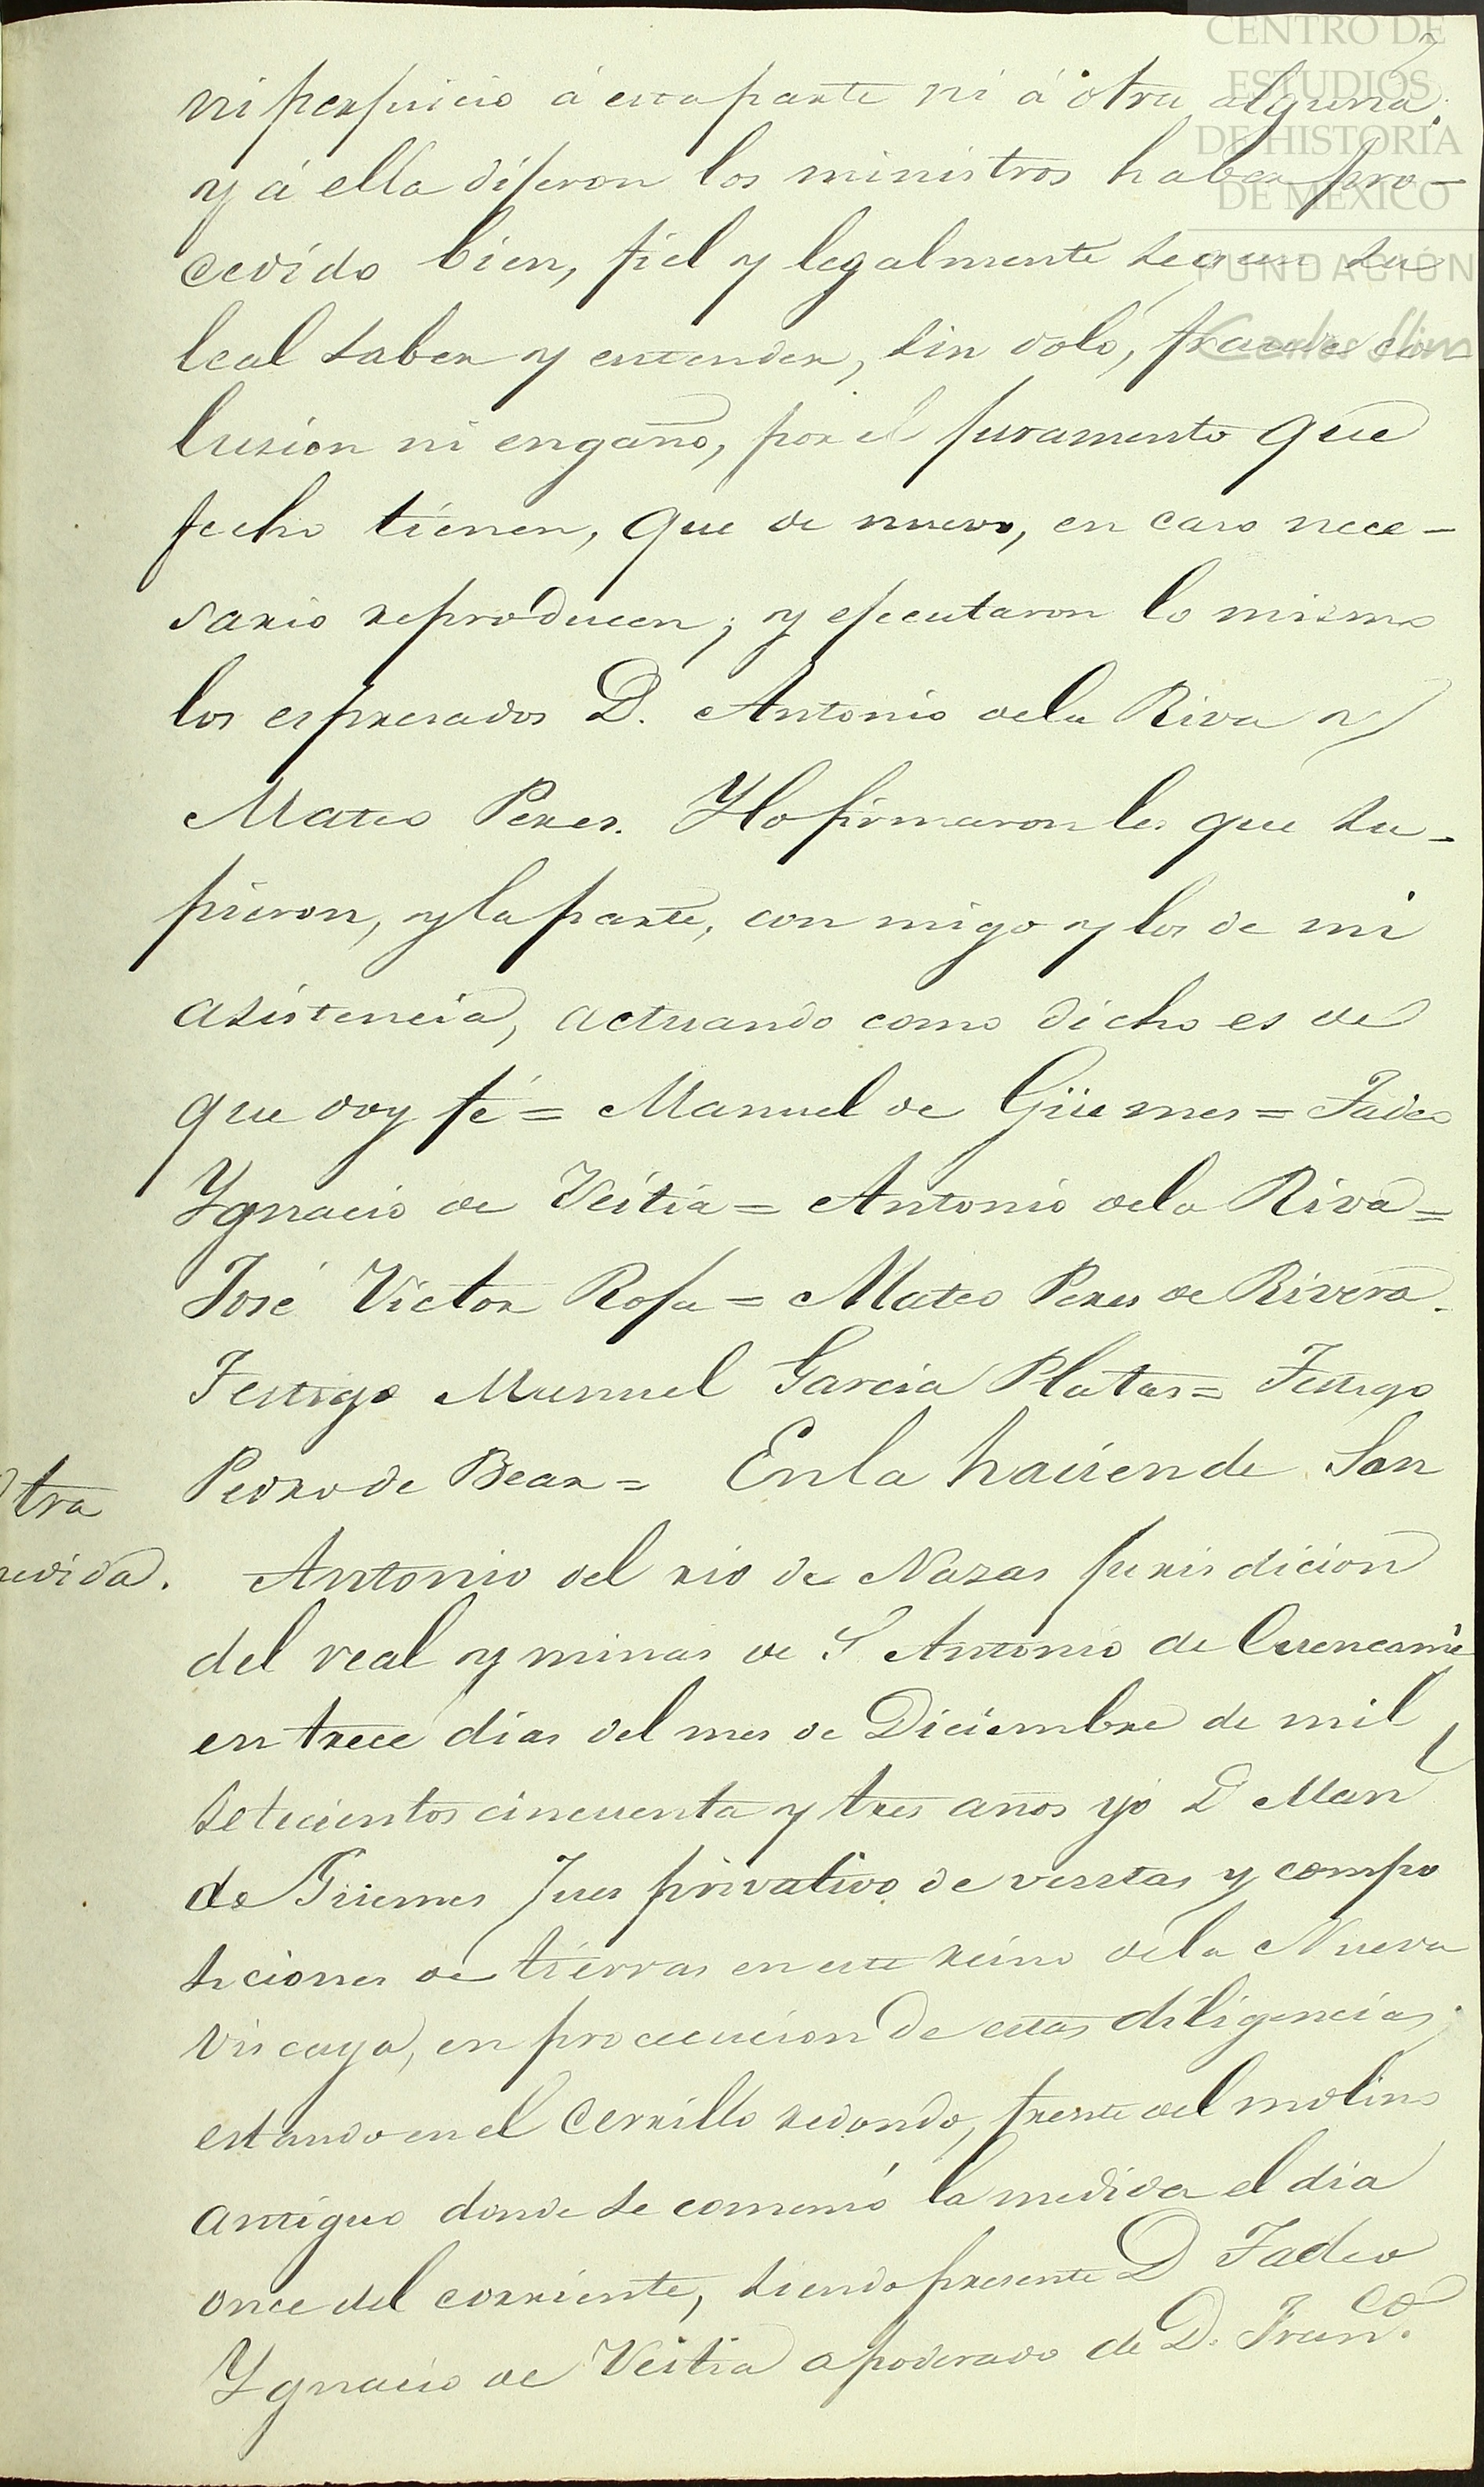 CENTRO DE
ESTUDIOS
DE HISTORIA
DE MÉXICO
FUNDACIÓN
Carlos Slim
ni perjuicio á esta parte ni á otra alguna;
y á ella dijeron los ministros haber pro-
cedido bien, fiel y legalmente segun su
leal saber y entender, sin dolo, fraude co-
lusion ni engaño, por el juramento que
fecho tienen, que de nuevo, en caso nece-
sario reproducen; y ejecutaron lo mismo
los espresados D. Antonio dela Riva y
Mateo Peres. Ylo firmaron los que su-
pieron, y la parte, con migo y los de mi
asistencia, actuando como dicho es de
que doy fé = Manuel de Güemes = Tadeo
Ygnacio de Veitia = Antonio dela Riva =
José Victor Rosa = Mateo Peres de Rivera.
Testigo Manuel Garcia Platas = Testigo
Pedro de Bear = Enla hacienda San
Otra
medida.
Antonio del rio de Nazas jurisdicion
del real y minas de S Antonio de Cuencamé
en trece dias del mes de Diciembre de mil
setecientos cincuenta y tres años yo D Man
de Güemes Jues privativo de ventas y compo
siciones de tierras en este reino dela Nueva
Viscaya, en procecucion de estas diligencias,
estando en el cerrillo redondo, frente del molino
antiguo donde se comensó la medida el dia
once del corriente, siendo presente D Tadeo
Ygnacio de Veitia apoderado de D. Franco.